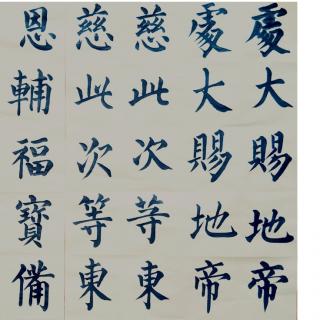 處大賜地帝
處大賜地帝
慈此次等東
慈此次等東
恩輔福寶備